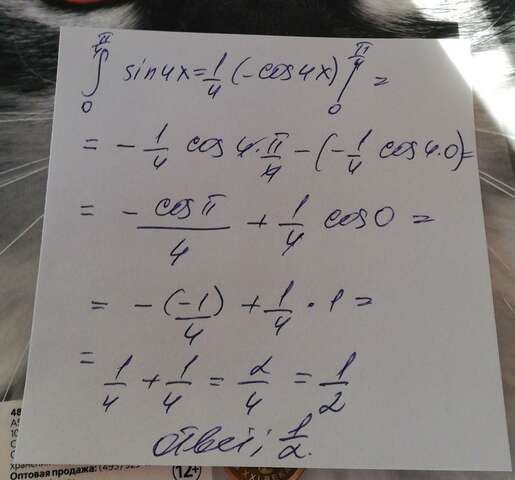 ∫₀^(π/4) sin4x = 1/4 (-cos4x) |₀^(π/4) =
= - 1/4 cos 4·π/4 - (-1/4 cos4·0) =
= - cosπ/4 + 1/4 cos0 =
= - (-1)/4 + 1/4 · 1 =
= 1/4 + 1/4 = 2/4 = 1/2
ответ: 1/2.
48
Оптовая продажа: (495) 925
12+